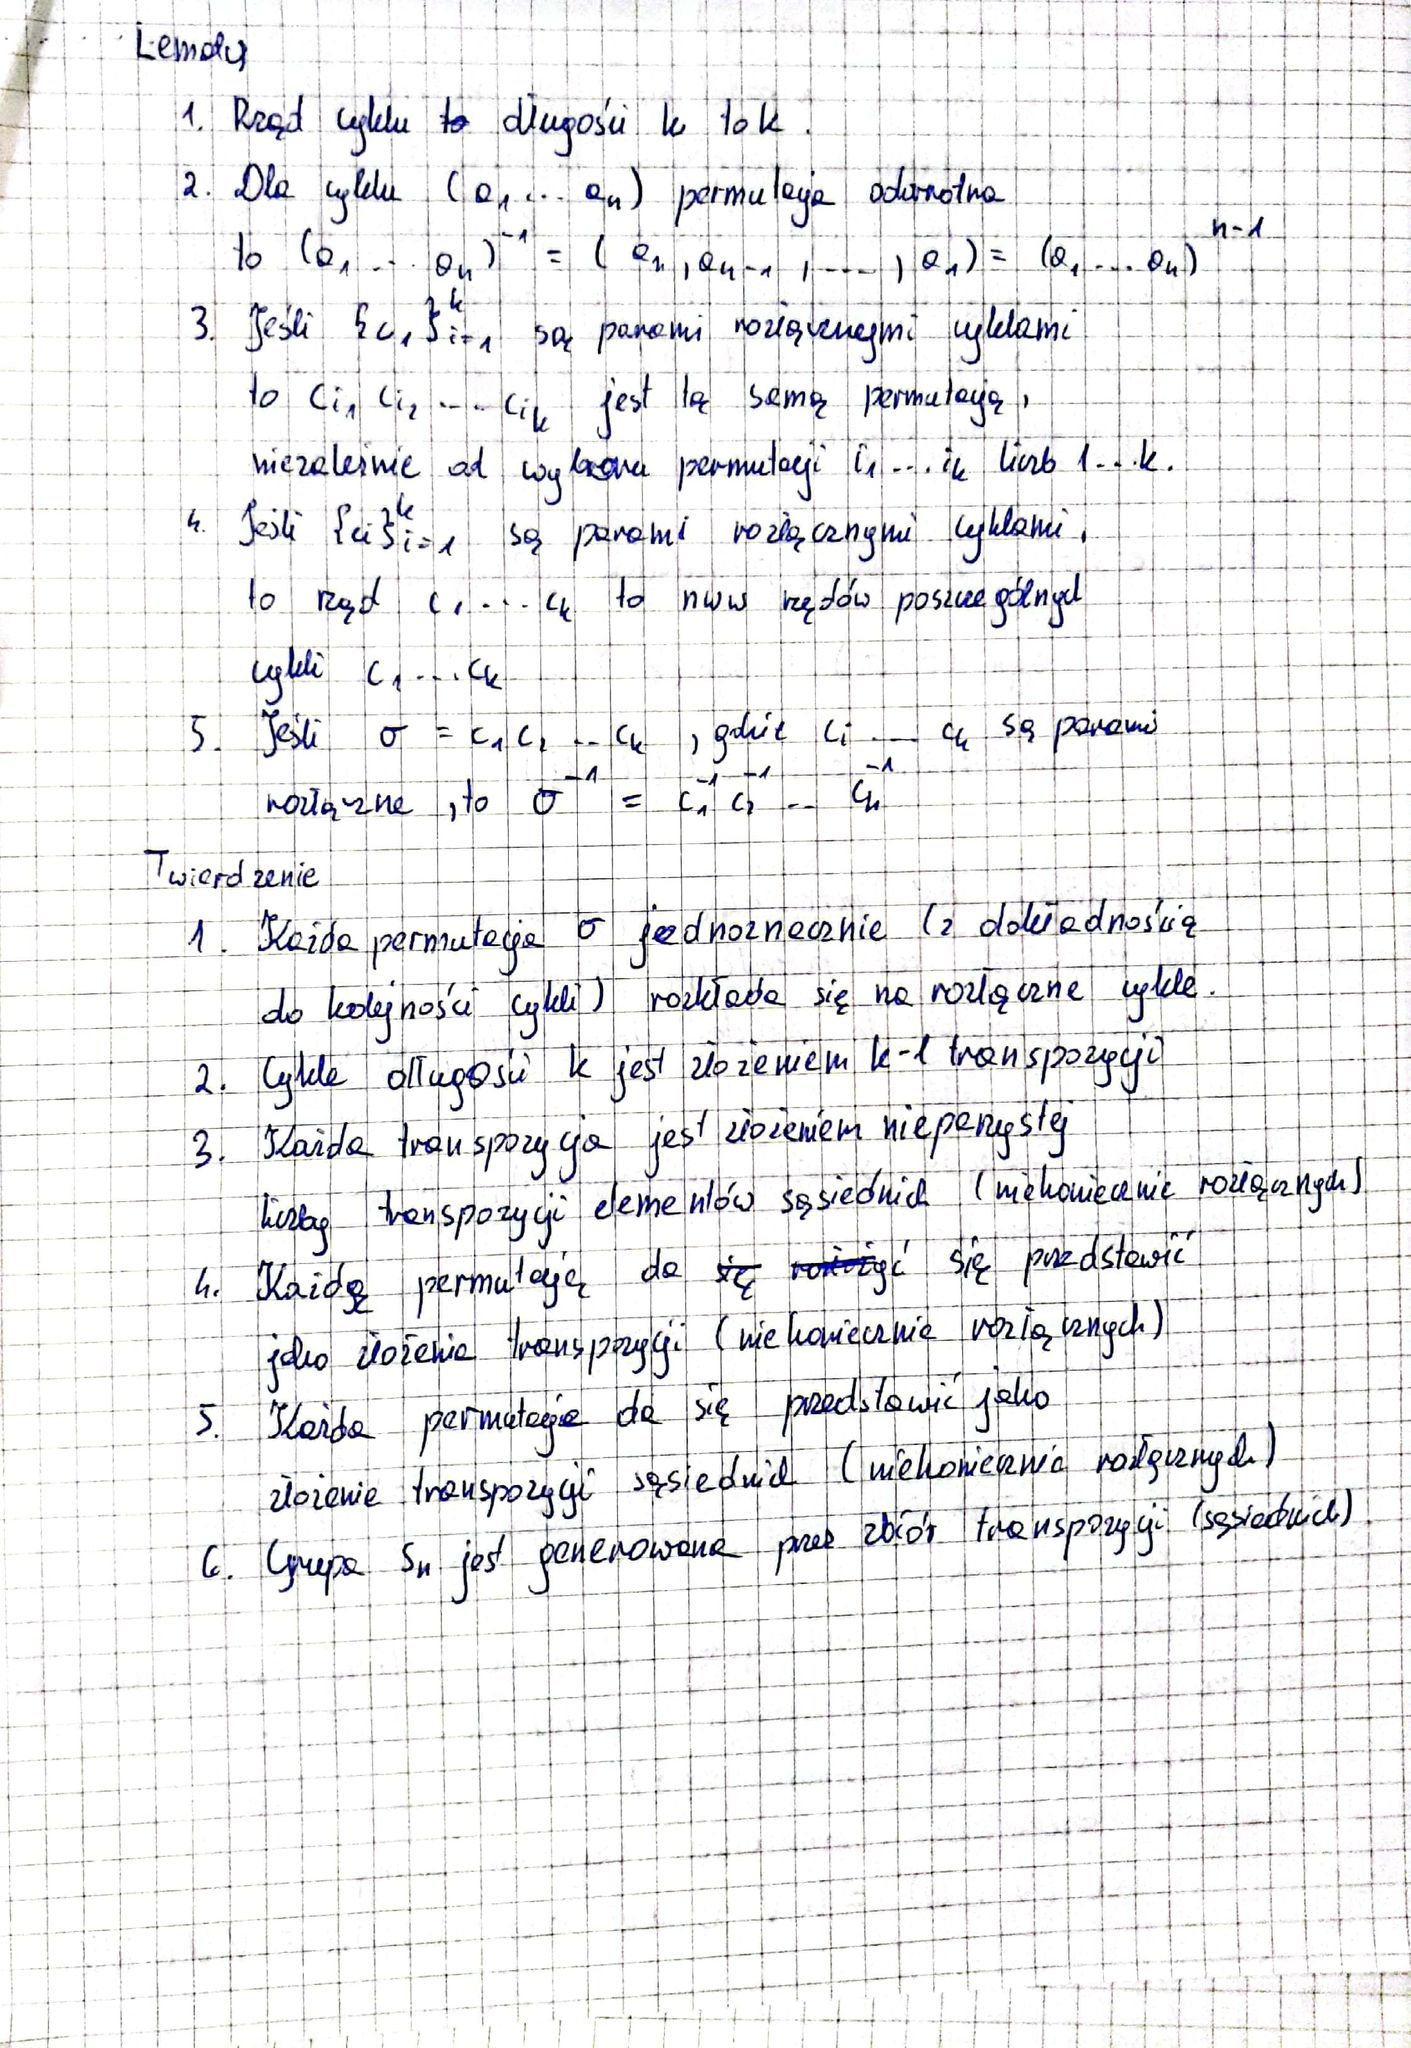 Lematy
1. Rząd cyklu to długości k to k.
2. Dla cyklu (a₁ ... aₙ) permutacja odwrotna
to (a₁ ... aₙ)⁻¹ = (aₙ, aₙ₋₁, ...., a₁) = (a₁ .... aₙ)ⁿ⁻¹
3. Jeśli {c₁}ᵏᵢ₌₁ są parami rozłącznymi cyklami
to cᵢ₁ cᵢ₂ .... cᵢₖ jest tą samą permutacją,
niezależnie od wyboru permutacji i₁ ... iₖ liczb 1...k.
4. Jeśli {cᵢ}ᵏᵢ₌₁ są parami rozłącznymi cyklami,
to rząd c₁ ... cₖ to nww rzędów poszczególnych
cykli c₁ .... cₖ
5. Jeśli σ = c₁ c₂ ... cₖ, gdzie cᵢ .... cₖ są parami
rozłączne, to σ⁻¹ = c₁⁻¹ c₂⁻¹ ... cₖ⁻¹
Twierdzenie
1. Każda permutacja σ jednoznacznie (z dokładnością
do kolejności cykli) rozkłada się na rozłączne cykle.
2. Cykle długości k jest złożeniem k-1 transpozycji
3. Każda transpozycja jest złożeniem nieparzystej
liczby transpozycji elementów sąsiednich (niekoniecznie rozłącznych)
4. Każdą permutację da się rozłożyć się przedstawić
jako złożenie transpozycji (niekoniecznie rozłącznych)
5. Każda permutację da się przedstawić jako
złożenie transpozycji sąsiednich (niekoniecznie rozłącznych)
6. Grupa Sₙ jest generowana przez zbiór transpozycji (sąsiednich)